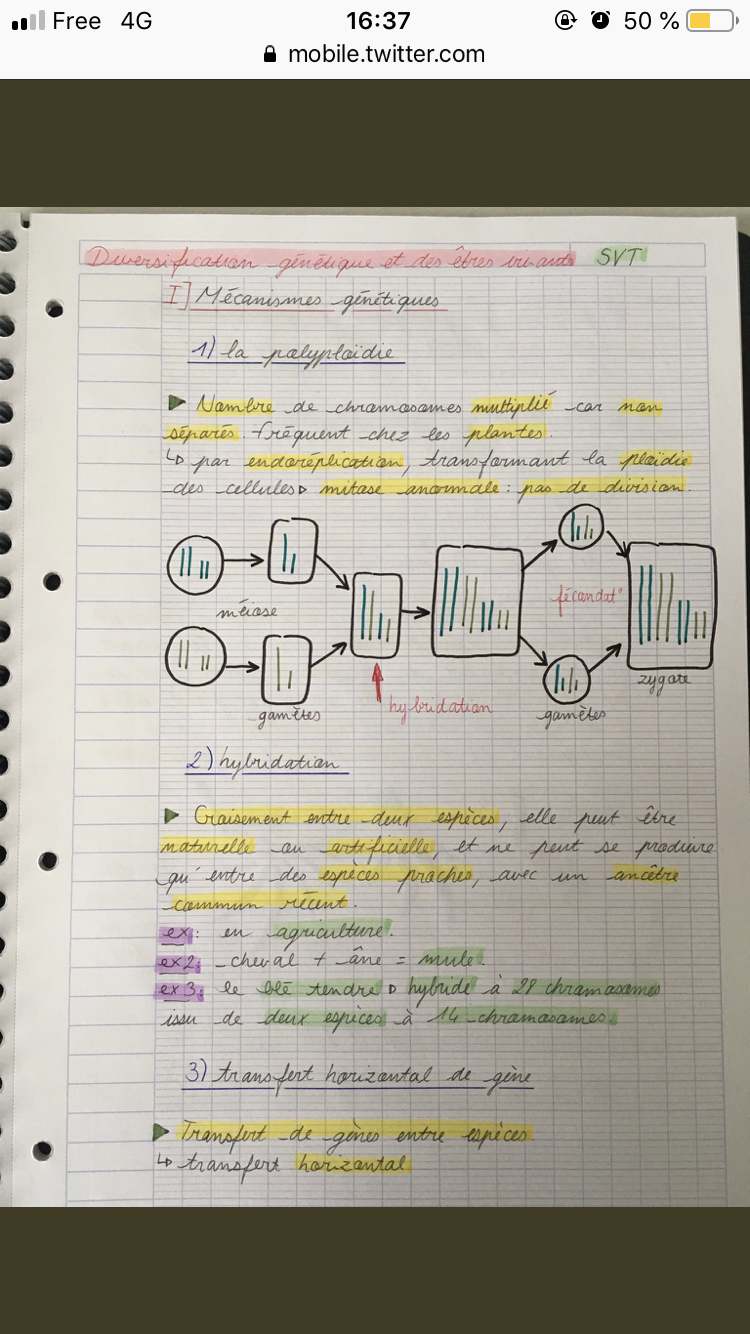 Free 4G 16:37 50 %
mobile.twitter.com
Diversification génétique et des êtres vivants SVT
I] Mécanismes génétiques
1) la polyploïdie
Nombre de chromosomes multiplié car non
séparés. fréquent chez les plantes.
↳ par endoréplication, transformant la ploïdie
des cellules▹ mitose anormale : pas de division.
méiose
fécondat°
zygote
gamètes
hybridation
gamètes
2) hybridation
Croisement entre deux espèces, elle peut être
naturelle ou artificielle, et ne peut se produire
qu'entre des espèces proches, avec un ancêtre
commun récent.
ex: en agriculture.
ex2: cheval + âne = mule.
ex3: le blé tendre ▹ hybride à 28 chromosomes
issu de deux espèces à 14 chromosomes.
3) transfert horizontal de gène
Transfert de gènes entre espèces
↳ transfert horizontal